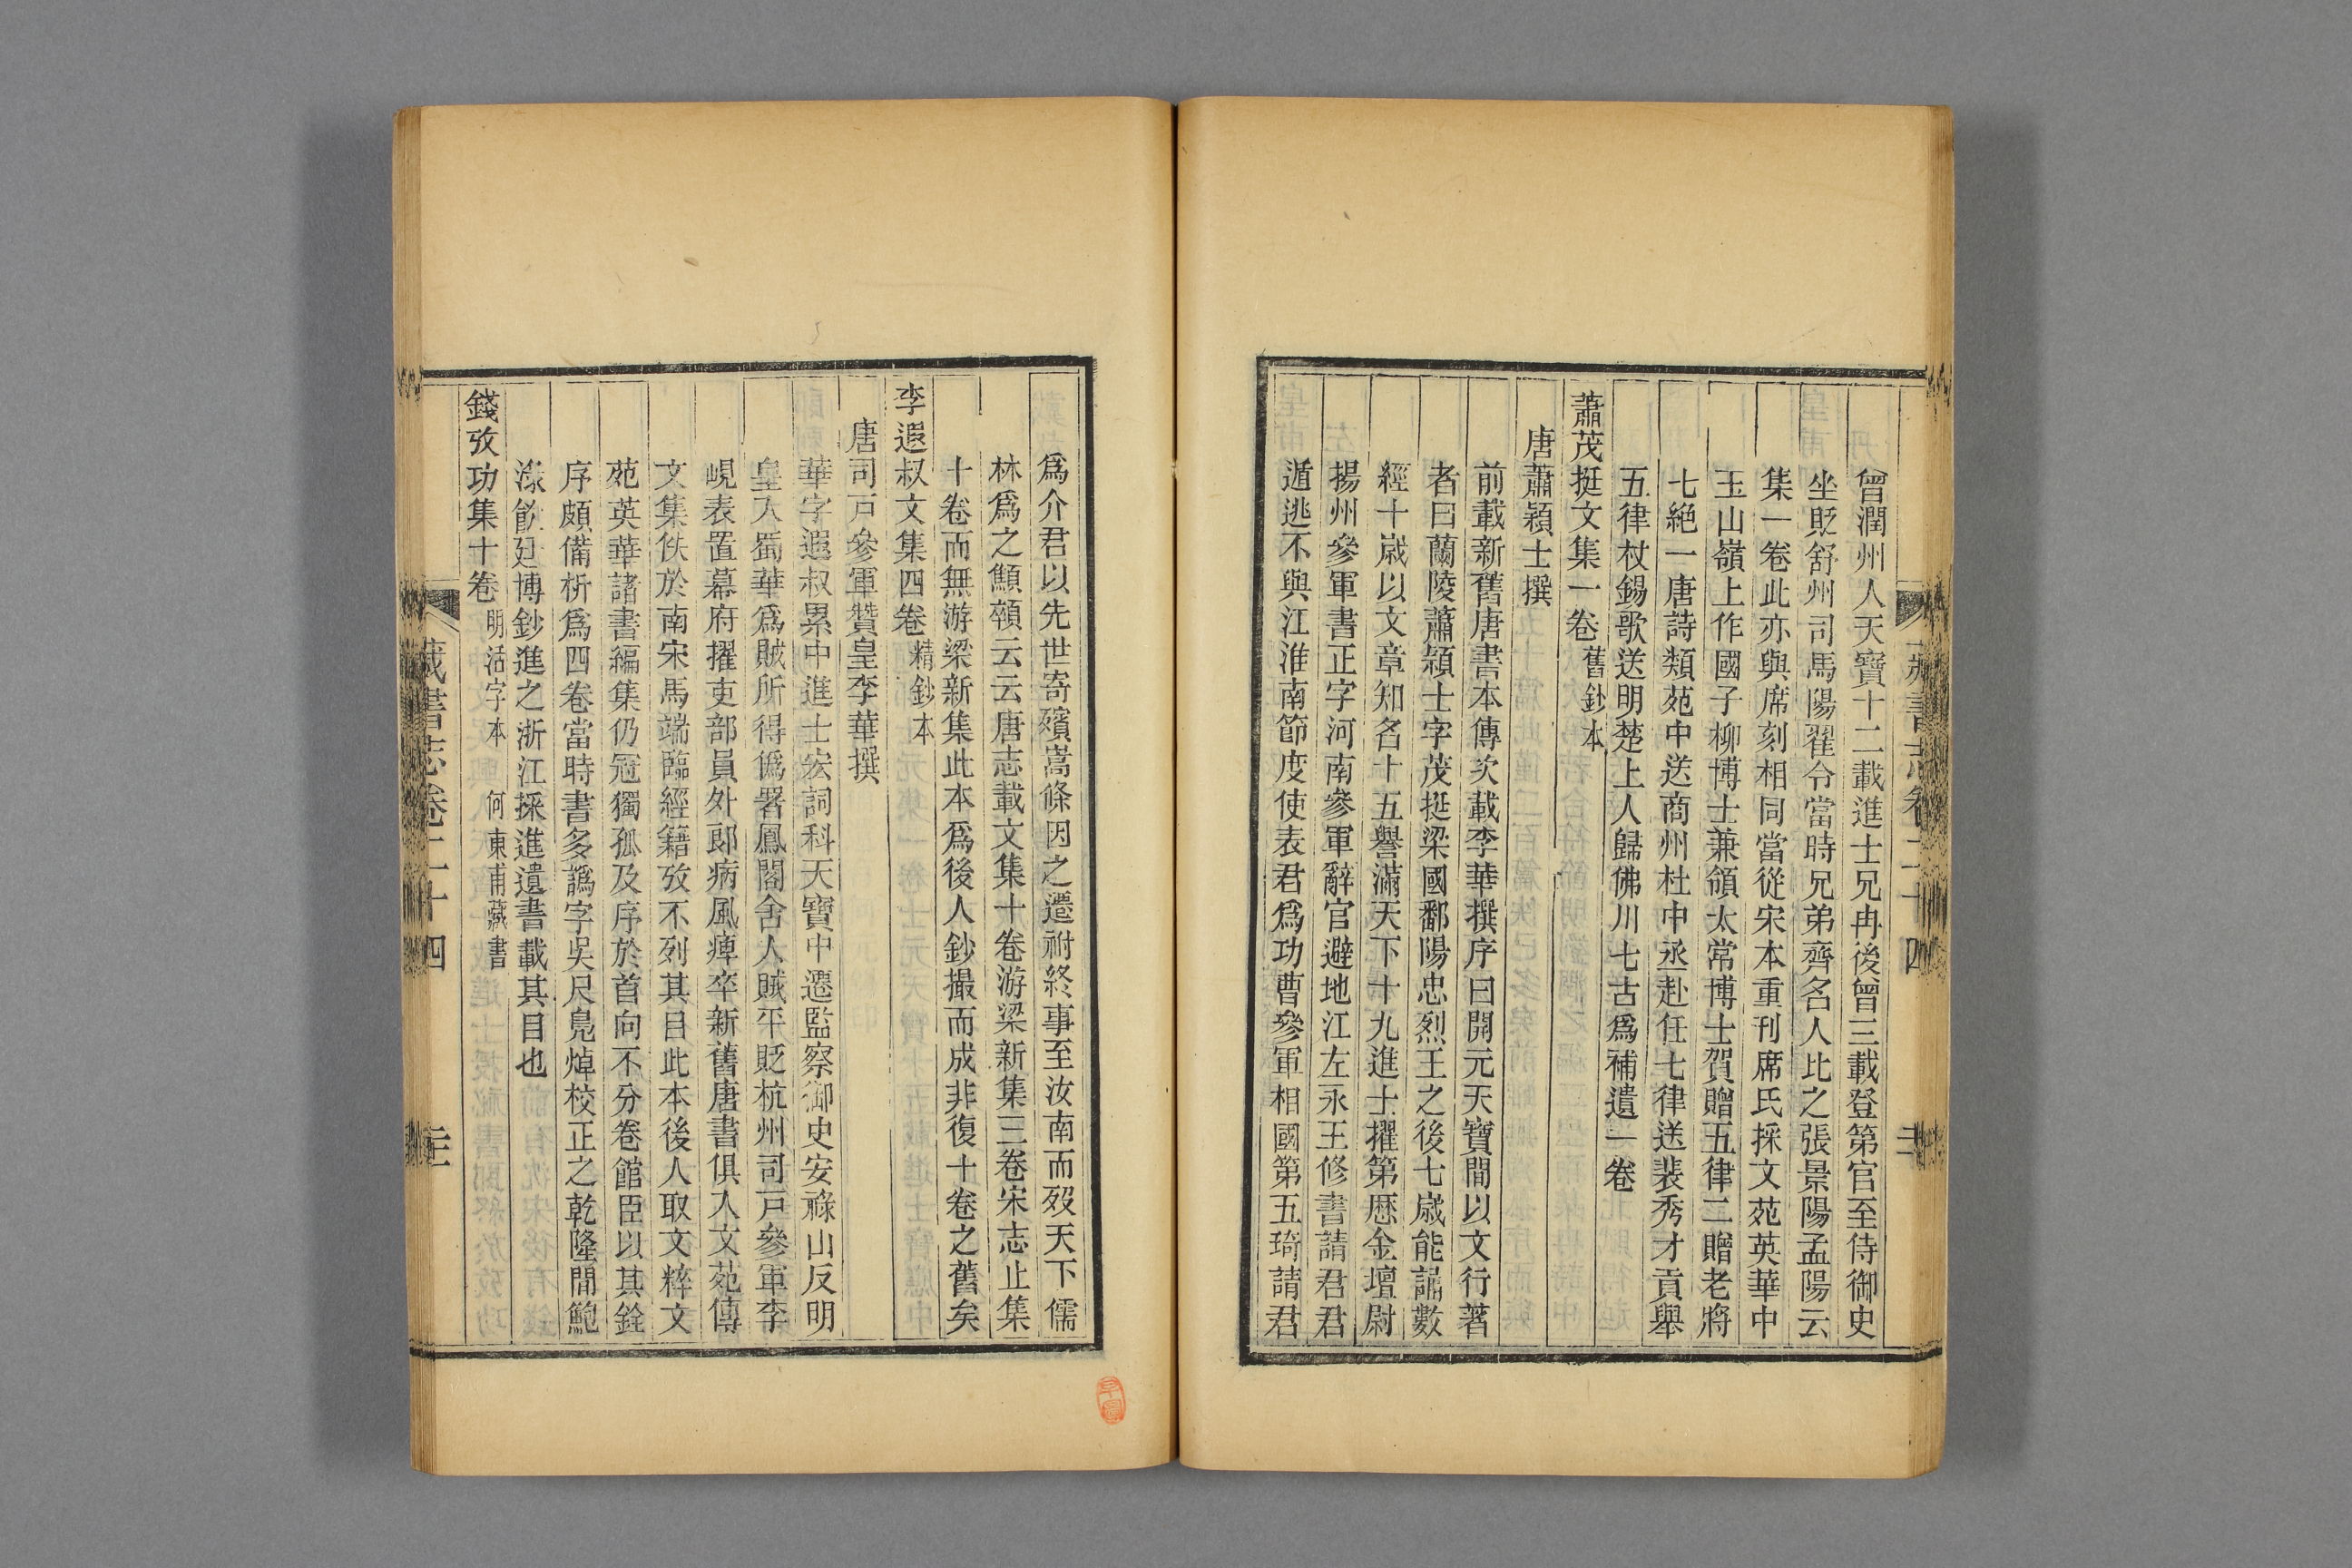 曾潤州人天寶十二載進士兄冉後曾三載登第官至侍御史
坐貶舒州司馬陽翟令當時兄弟齊名人比之張景陽孟陽云
集一卷此亦與席刻相同當從宋本重刊席氏採文苑英華中
玉山嶺上作國子柳博士兼領太常博士賀贈五律二贈老將
七絕一唐詩類苑中送商州杜中丞赴任七律送裴秀才貢舉
五律杖錫歌送明楚上人歸佛川七古爲補遺一卷
蕭茂挺文集一卷舊鈔本
唐蕭穎士撰
前載新舊唐書本傳次載李華撰序曰開元天寶間以文行著
者曰蘭陵蕭穎士字茂挺梁國鄱陽忠烈王之後七歲能誦數
經十歲以文章知名十五譽滿天下十九進士擢第歷金壇尉
揚州參軍書正字河南參軍辭官避地江左永王修書請君君
遁逃不與江淮南節度使表君爲功曹參軍相國第五琦請君
爲介君以先世寄殯嵩條因之遷祔終事至汝南而歿天下儒
林爲之顦顇云云唐志載文集十卷游梁新集三卷宋志止集
十卷而無游梁新集此本爲後人鈔撮而成非復十卷之舊矣
李遐叔文集四卷精鈔本
唐司戸參軍贊皇李華撰
華字遐叔累中進士宏詞科天寶中遷監察御史安祿山反明
皇入蜀華爲賊所得僞署鳳閣舍人賊平貶杭州司戸參軍李
峴表置幕府擢吏部員外郎病風痺卒新舊唐書俱入文苑傳
文集佚於南宋馬端臨經籍攷不列其目此本後人取文粹文
苑英華諸書編集仍冠獨孤及序於首向不分卷館臣以其銓
序頗備析爲四卷當時書多譌字吳尺鳧焯校正之乾隆間鮑
淥飮廷博鈔進之浙江採進遺書載其目也
錢攷功集十卷明活字本 何東甫藏書
藏書志卷二十四